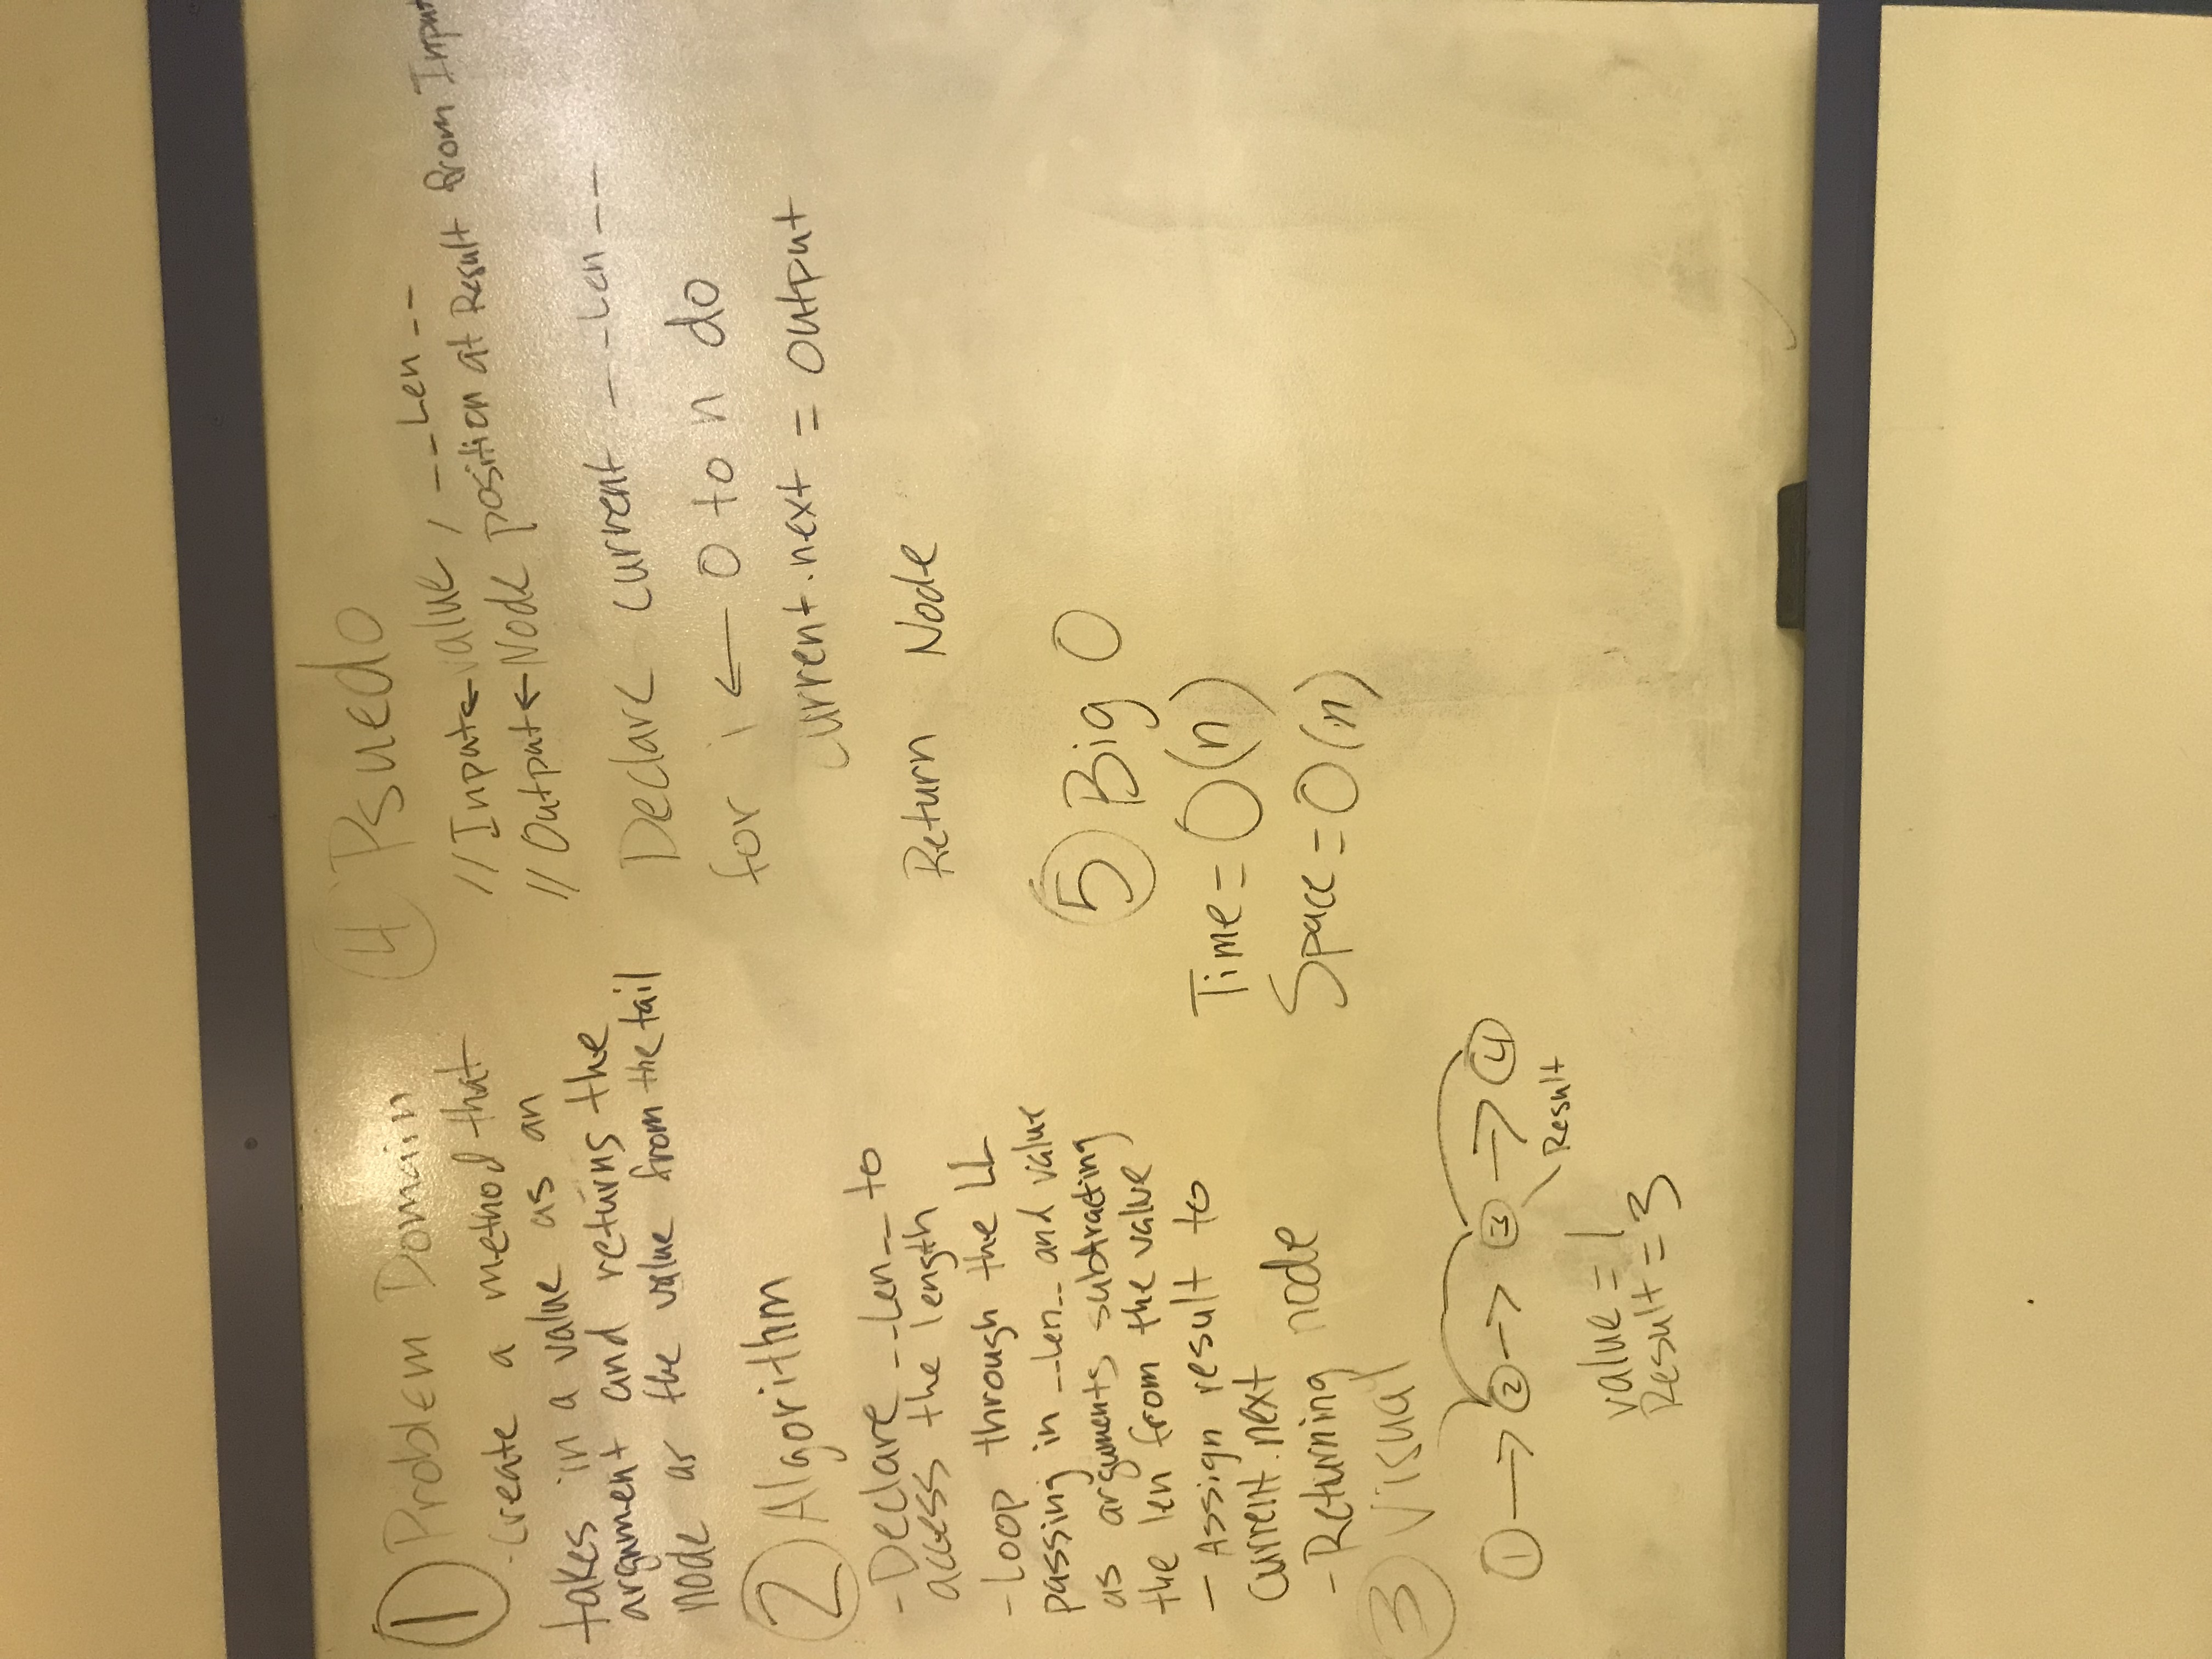 1 Problem Domain
- Create a method that
takes in a value as an
argument and returns the
node as the value from the tail
2 Algorithm
- Declare __Len__ to
access the length
- Loop through the LL
passing in __Len__ and value
as arguments subtracting
the len from the value
- Assign result to
current.next
- Returning node
3 Visual
1 → 2 → 3 → 4
Result
value = 1
Result = 3
4 Psuedo
// Input ← value, __Len__
// Output ← Node position at Result from Input
Declare current __Len__
for i ← 0 to n do
current.next = output
Return Node
5 Big O
Time = O(n)
Space = O(n)